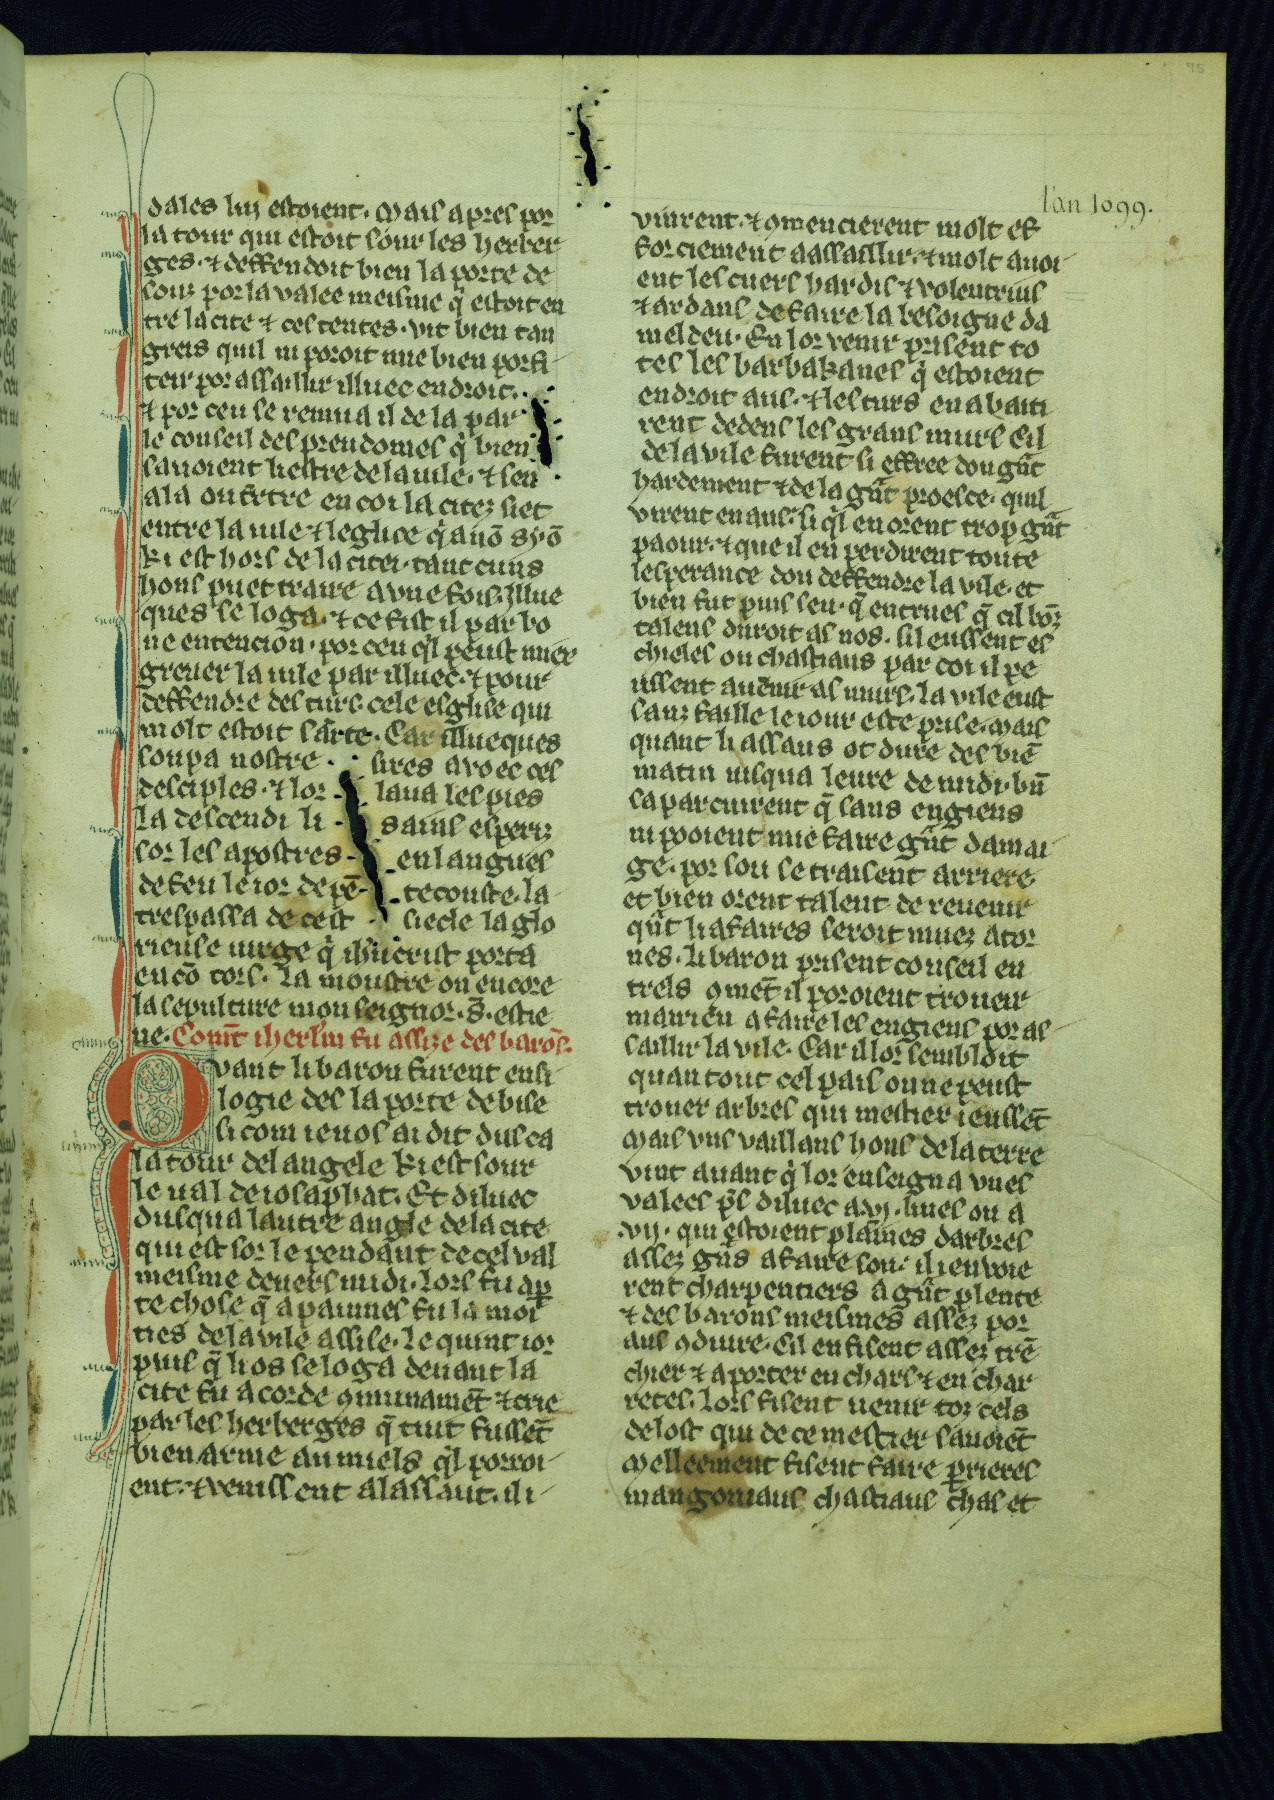 95
l'an 1099.
dales lui estoient. Mais apres por
la tour qui estoit sour les herber
ges. ⁊ deffendoit bien la porte de
souz por la valee meisme q̇ estoit en
tre la cite ⁊ ces tentes. vit bien tan
greis quil ni poroit mie bien porfi
teir por assaillir illuec endroit.
⁊ por ceu se remua il de la par
le conseil des preudomes q̇ bien
savoient liestre de la uile. ⁊ sen
ala ou tertre en coi la citez siet
entre la uile ⁊ leglise q̇ a nō syō
Ki est hors de la citei. tant cuns
hons puet traire a vne fois. Illue
ques se loga. ⁊ ce fist il par bo
ne entencion. por ceu q̇l peust miez
grever la uile par illuec. ⁊ pour
deffendre des turs cele esglise qui
molt estoit sāīte. Car illueques
soupa nostre sires avoec ces
desciples. ⁊ lor laua les pies
La descendi li sains esperiz
sor les apostres en langues
de feu le ior de pē tecouste. la
trespassa de cest siecle la glo
rieuse uirge q̇ ihūcrist porta
en cō cors. La moustre on encore
la sepulture mon seignor. S. estie
ne. Com̄t iherl'm fu assize des barōs.
Quant li baron furent ensi
logie des la porte de bise
si com ie uos ai dit dusca
la tour del angele Ki est sour
le ual de iosaphat. Et diluec
dusqua lautre angle de la cite
qui est sor le pendant de cel val
meisme deuers midi. Lors fu ap
te chose q̄ a painnes fu la moi
ties de la vile assise. Le quint ior
puis q̄ li os se loga deuant la
cite fu acorde ꝯmunamēt ⁊ crie
par les herberges q̄ tuit fussēt
bien arme au miels q̇l porroi
ent. ⁊ venissent a lassaut. il i
vinrent. ⁊ ꝯmencierent molt ef
forciement a assaillir. ⁊ molt auoi
ent les cuers hardis ⁊ volentrius
⁊ ardans de faire la besoigne da
meldeu. En lor venir prisent to
tes les barbakanes q̇ estoient
endroit aus. ⁊ les turs en abaiti
rent dedens les grans murs Cil
de la vile furent si effree dou gr̄t
hardement ⁊ de la gr̄t proesce. quil
virent en aus. si q̇l en orent trop gr̄t
paour. ⁊ que il en perdirent toute
lesperance dou deffendre la vile. et
bien fut puis seu. q̄ entrues q̄ cil bōz
talens duroit as nos. sil eussent es
chieles ou chastiaus par coi il pe
ussent auenir as murs. la vile eust
sanz faille le iour este prise. Mais
quant li assaus ot dure des biē
matin iusqua leure de midi. biē
saparcuirent q̄ sans engiens
ni pooient mie faire gr̄t damai
ge. por sou se traisent arriere
et bien orent talent de revenir
qn̄t li afaires seroit miez ator
nes. Li baron prisent conseil en
trels ꝯmēt il poroient troueir
mairien a faire les engiens por as
saillir la vile. Car il lor sembloit
quan tout cel pais on ne peust
trouer arbres qui mestier i eussēt
Mais vns vaillans hons de la terre
vint auant q̇ lor enseigna vnes
valees p̄s diluec a .vj. liues ou a
.vij. qui estoient plainnes darbres
assez gr̄ns a faire sou. il i envoie
rent charpentiers a gr̄t plente
⁊ des barons meismes assez por
aus ꝯduire. Cil en fisent assez trē
chier ⁊ aporter en chars ⁊ en char
retes. Lors fisent uenir toz cels
de lost qui de ce mestier sauoiēt
Melleement fisent faire prieres
mangoniaus chastiaus chas et